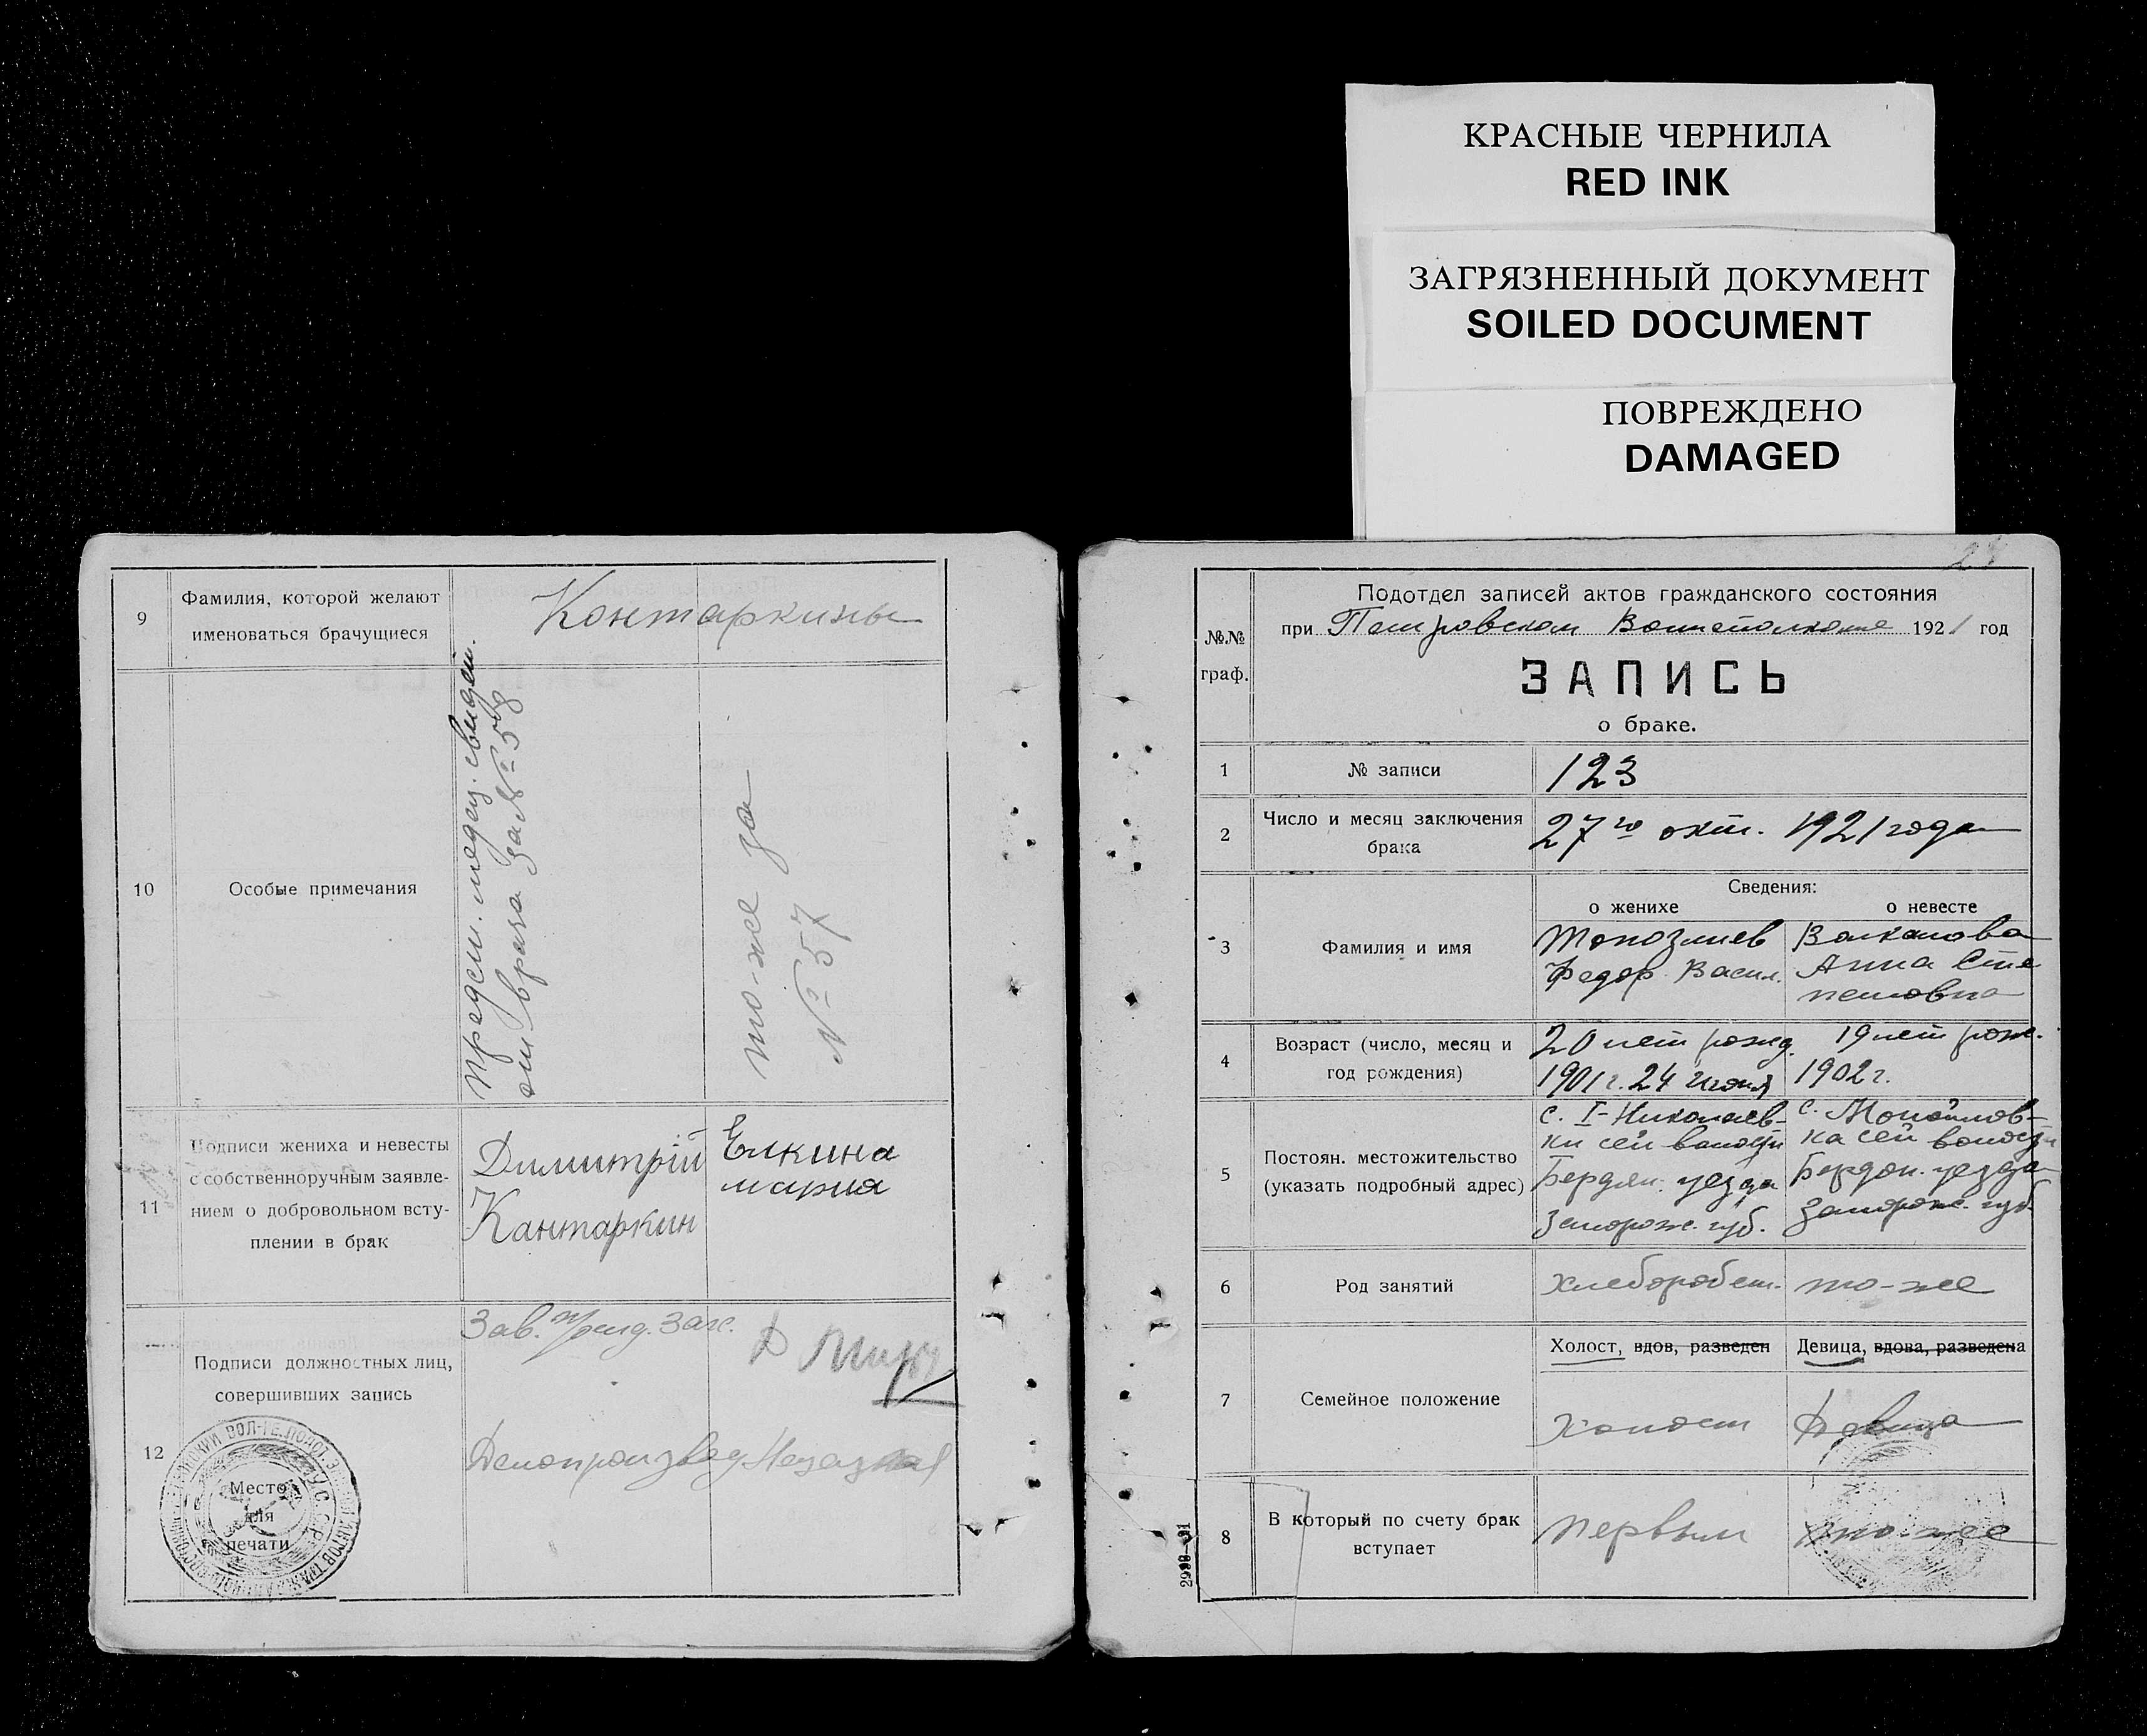 КРАСНЫЕ ЧЕРНИЛА
RED INK
ЗАГРЯЗНЕННЫЙ ДОКУМЕНТ
SOILED DOCUMENT
ПОВРЕЖДЕНО
DAMAGED
9
Фамилия, которой желают
именоваться брачущиеся
Контаркины
10
Особые примечания
предст. медиц. свидет.
от врача за № 56
то-же за
№ 57
11
Подписи жениха и невесты
с собственноручным заявле-
нием о добровольном всту-
плении в брак
Димитрій
Кантаркин
Елкина
мария
12
Подписи должностных лиц,
совершивших запись
Зав.
Делопроизвод.
Место
для
печати
№№
граф.
Подотдел записей актов гражданского состояния
при Петровском Волисполкоме 1921 год
ЗАПИСЬ
о браке.
1
№ записи
123
2
Число и месяц заключения
брака
27го окт. 1921 года
3
Фамилия и имя
Сведения:
о женихе
о невесте
Топозлиев
Федор Васил.
Волканова
Анна Сте
пановна
4
Возраст (число, месяц и
год рождения)
20 лет рожд.
1901 г. 24 июня
19 лет рож.
1902 г.
5
Постоян. местожительство
(указать подробный адрес)
с. I-Николаев-
ки сей волости
Бердян. уезда
Запорож. губ.
с.
ка сей волости
Бердян. уезда
Запорож. губ.
6
Род занятий
хлебороб
то-же
7
Семейное положение
Холост, вдов, разведен
Девица, вдова, разведена
Холост
Девица
8
В который по счету брак
вступает
первым
то-же